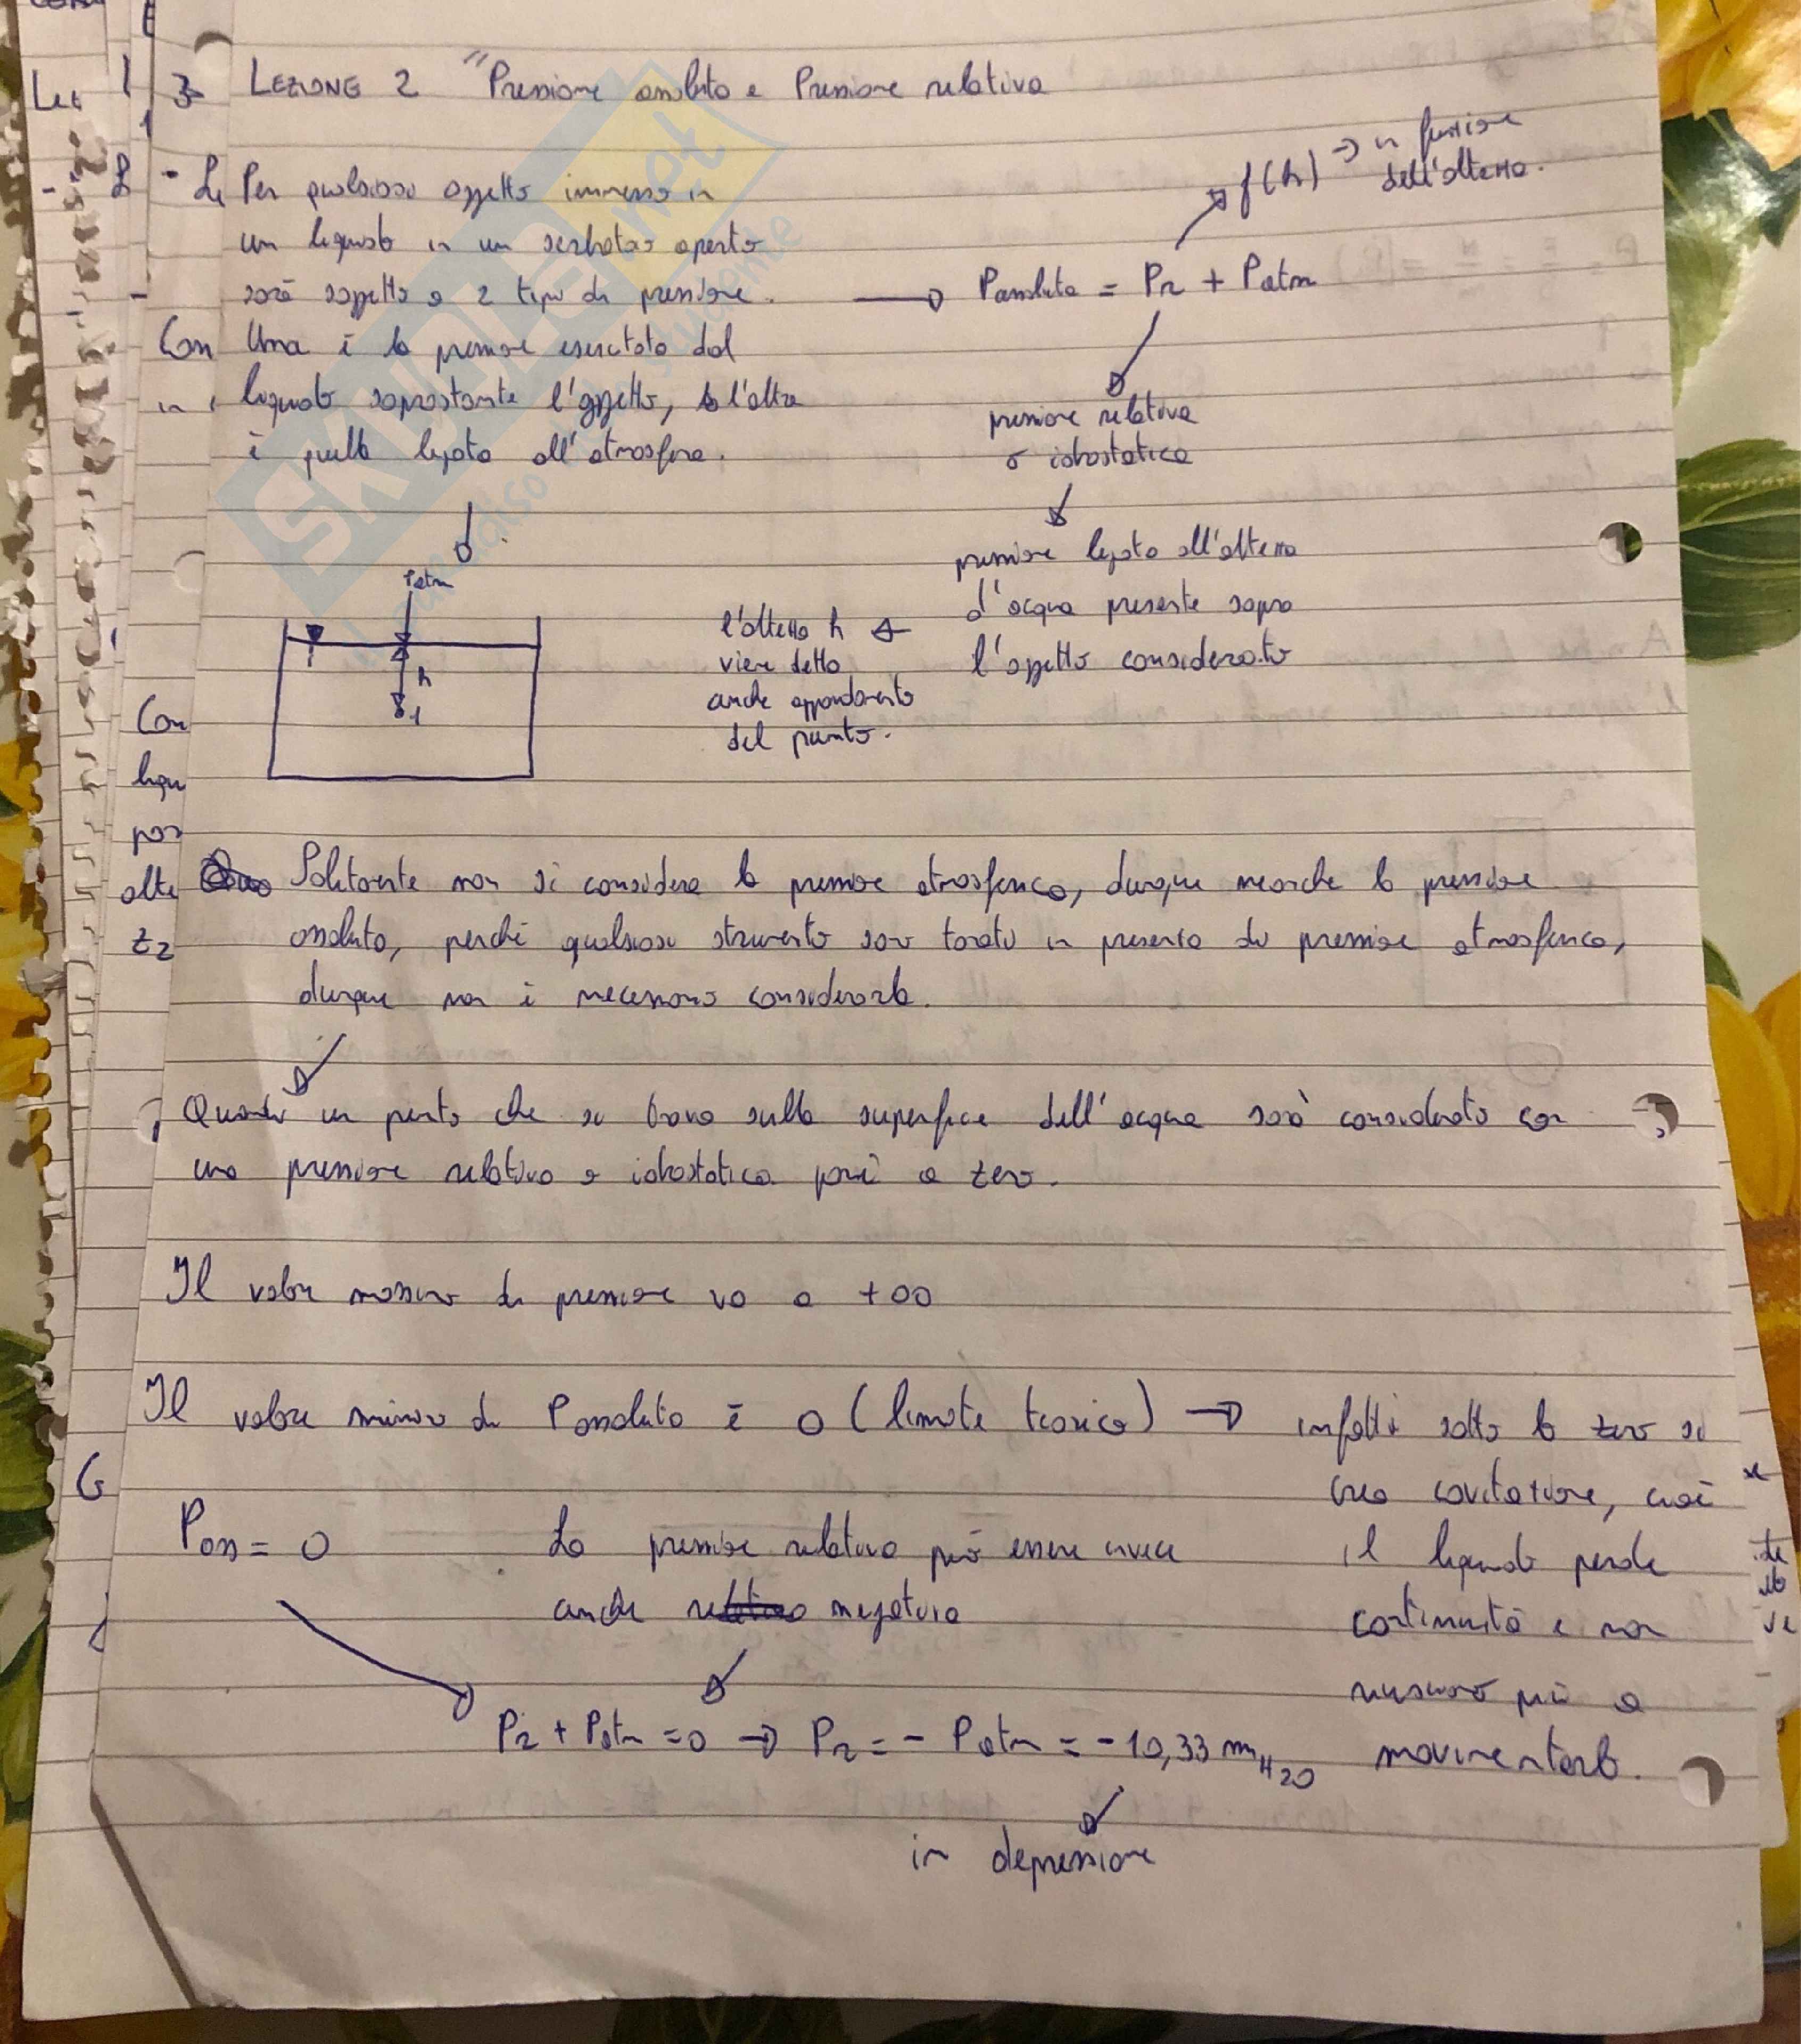 LEZIONE 2 "Pressione assoluta e Pressione relativa
Per qualsiasi oggetto immerso in
un liquido in un serbatoio aperto
sarà soggetto a 2 tipi di pressione.
Una è la pressione esercitata dal
liquido soprastante l'oggetto, l'altra
è quella legata all'atmosfera.
Passoluta = Pr + Patm
f(h) → in funzione
dell'altezza.
pressione relativa
o idrostatica
pressione legata all'altezza
d'acqua presente sopra
l'oggetto considerato
l'altezza h
viene detta
anche affondamento
del punto.
Patm
h
1
Solitamente non si considera la pressione atmosferica, dunque neanche la pressione
assoluta, perché qualsiasi strumento sarà tarato in presenza di pressione atmosferica,
dunque non è necessario considerarla.
Quando un punto che si trova sulla superficie dell'acqua sarà considerato con
una pressione relativa o idrostatica pari a zero.
Il valore massimo di pressione va a +∞
Il valore minimo di Passoluta è 0 (limite teorico) → infatti sotto lo zero si
crea cavitazione, cioè
il liquido perde
continuità e non
riusciamo più a
movimentarlo.
Pass = 0
La pressione relativa può essere invece
anche relativa negativa
Pr + Patm = 0 → Pr = - Patm = -10,33 mH2O
in depressione
Lez
3
Con
in
Con
liqu
por
alte
z2
SKUOLA.net